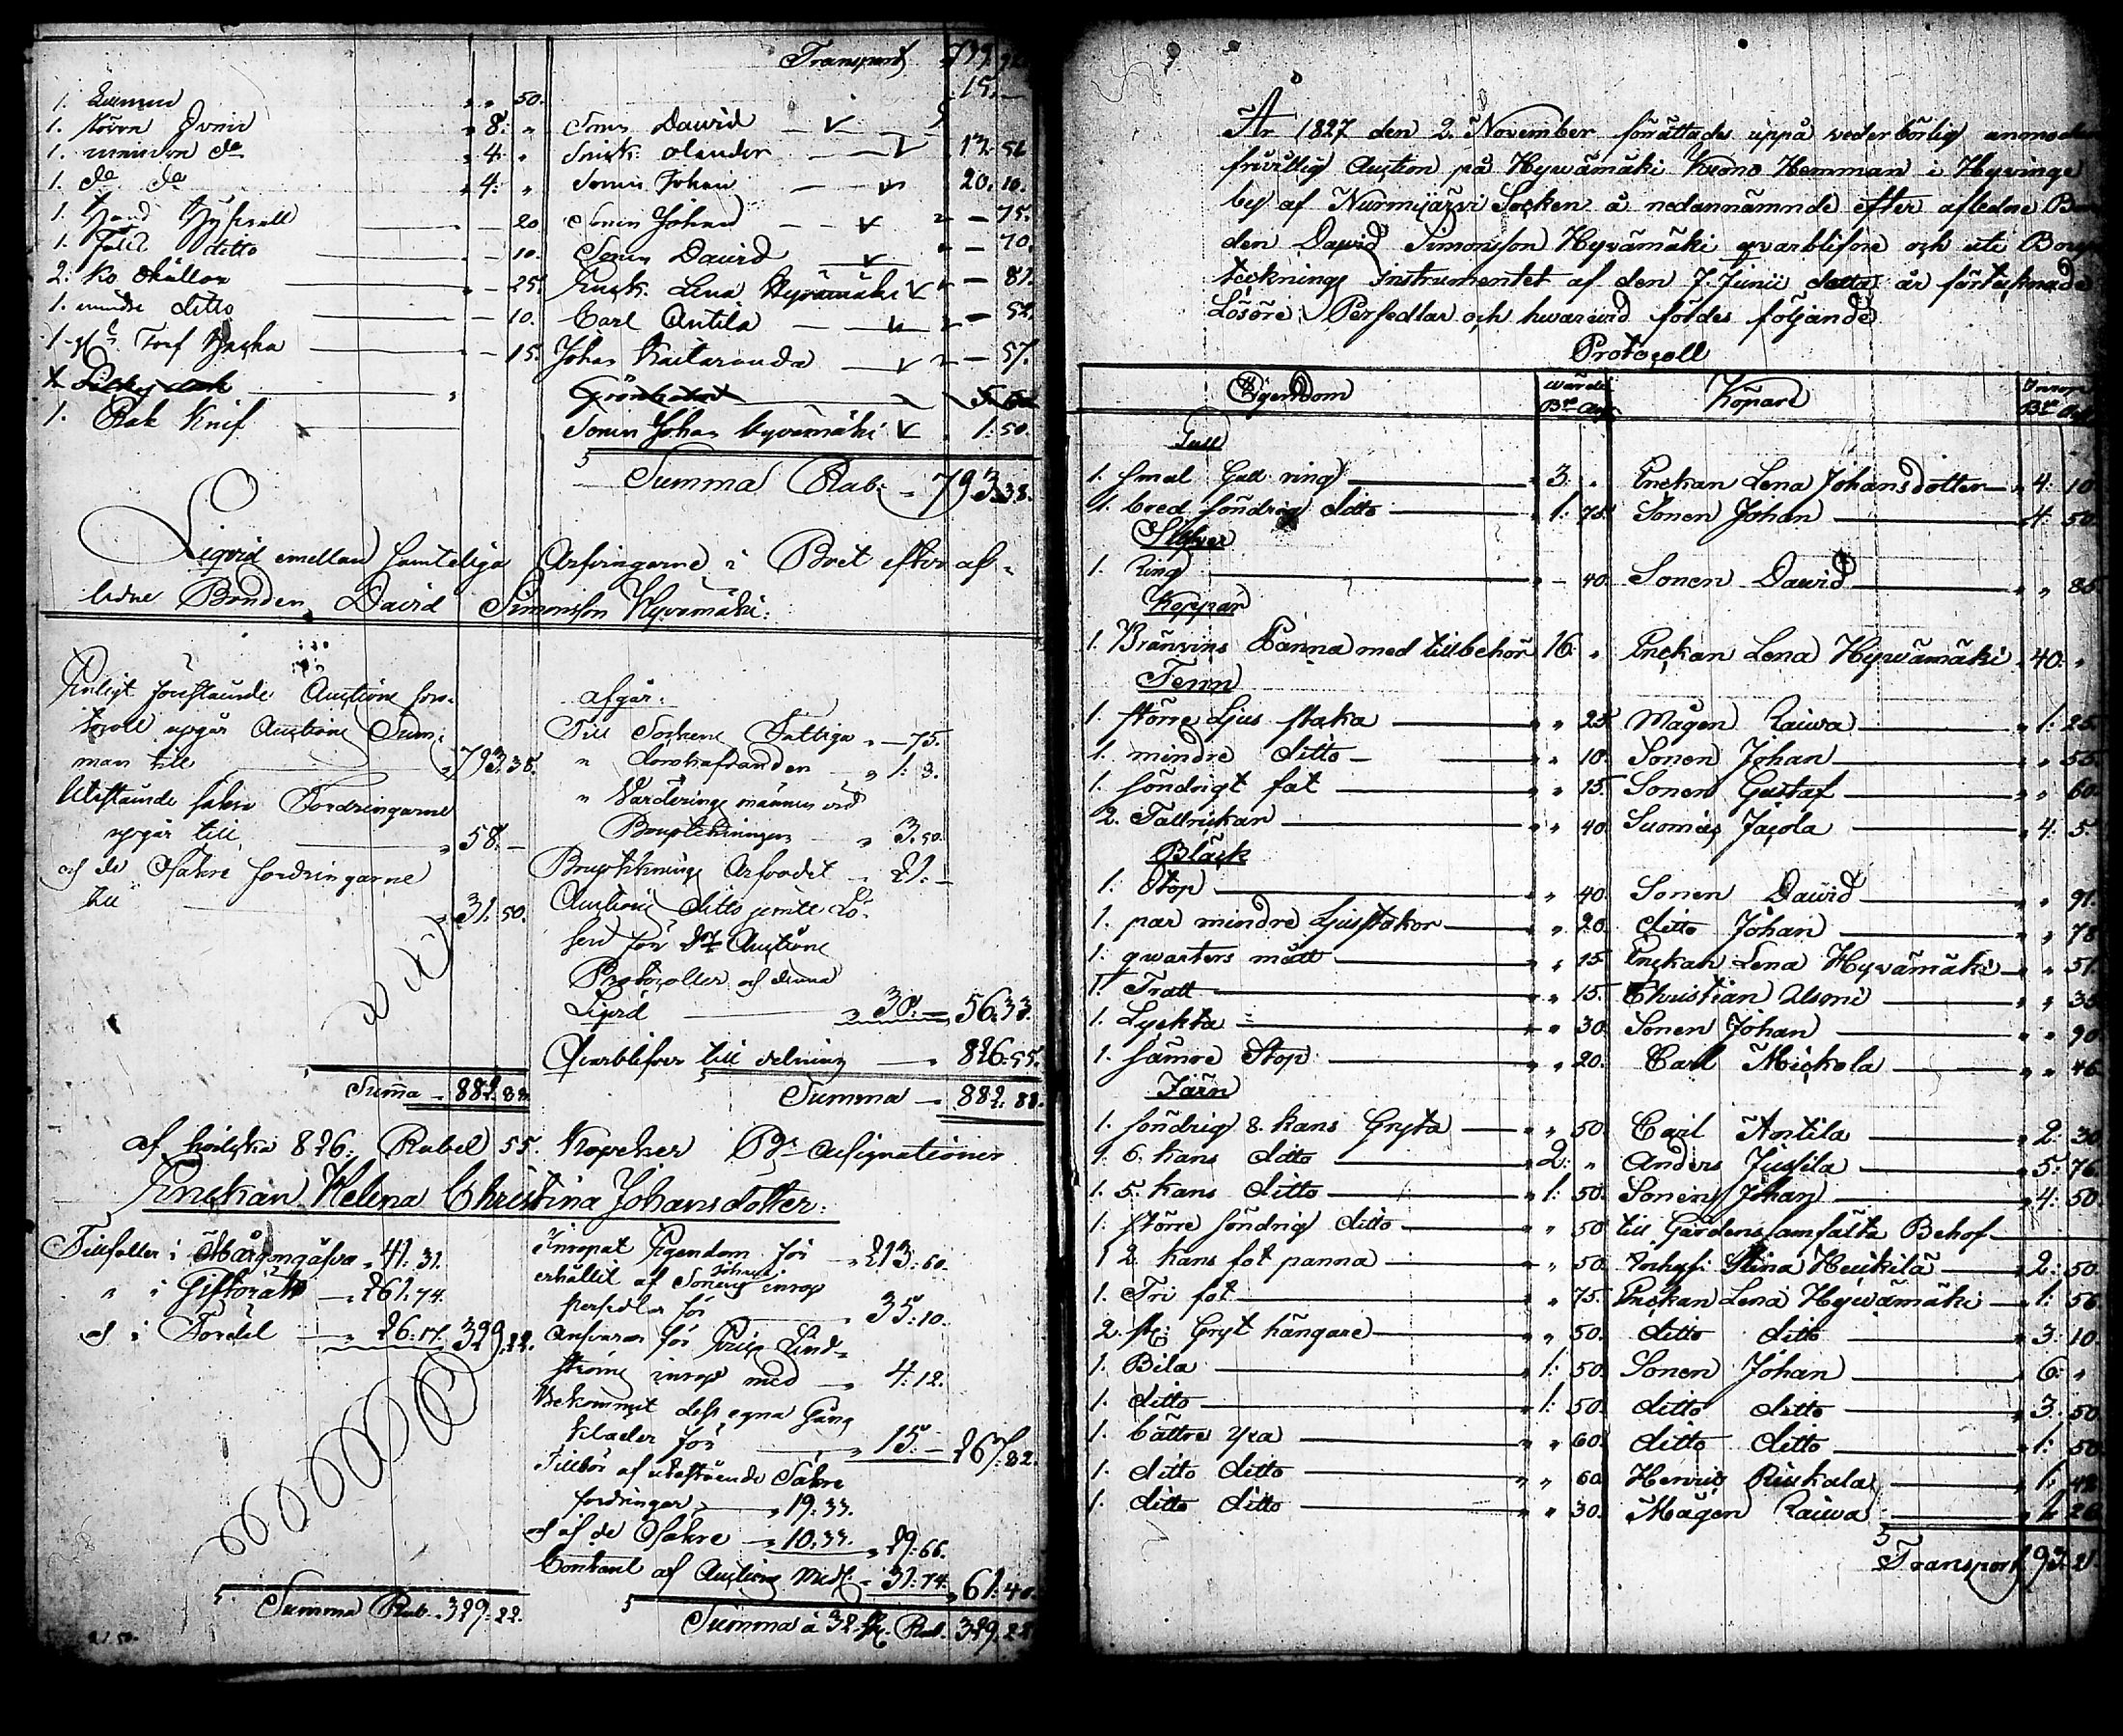 Transport 739.
15.
1. 50.
1. 8. Sonen Dawid
1. mindre do 4. Olander 13. 56
1. do do 4. Sonen Johan 20. 10.
1. 20 Sonen Johan 75.
1. ditto 10. Sonen Dawid 70.
2. Ko Skällor 25. Enck. Lena Hyvämäki 81.
1. mindre ditto 10. Carl Antila 52.
1 15. Johan 57.
1. Rak Knif Sonen Johan Hyvämäki 1. 50.
Summa Rub. 793.38.
Liqvid emellan samteliga Arfvingarne i Boet efter af-
ledne Bonden David Simonsson Hyvämäki:
Enligt förestående Auctions pro-
tocoll upgår Auctions Sum-
man till 793.38.
Utestående säkra Fordringarne
upgår till 58.
och de Osäkra fordringarne
till 31. 50.
Summa 882.88
afgår:
Till Sockens Fattiga 75.
" 1. 8.
" Värderings männen vid
Bouptekningen 3.50.
Bouptekning Arfvodet 21.
Auctions ditto jemte Lö-
sen för Auctions
Protocoller och denna
Liqvid 30. 56.33.
Qvarblifver till delning 826.55.
Summa 882.88.
af hvilka 826. Rubel 55. Kopeker Bco Assignationer
Enckan Helena Christina Johansdotter:
Tillfaller i Morgongåfva 41. 31.
" i Giftorätt 261.74.
och i Fördel 26.17. 329.22.
Summa Rub. 329.22.
Inropat Egendom för 213.60.
erhållit af Sonens Johans inrop
persedlar för 35.10.
Ansvarar för Lind-
ströms inrop med 4.12.
Bekommit dess egna Gång
kläder för 15. 267.82.
Tillkör af utestående Säkra
fordringar 19.33.
och af de Osäkra 10.33. 29.66.
Contant af Auctions Medl. 31.74. 61.40.
Summa à Rub. 329.22
År 1827 den 2. November förrättades uppå vederbörlig
frivillig Auction på Hyvämäki Krono Hemman i Hyvinge
by af Nurmijärvi Socken å nedannämnde efter afledne
den David Simonsson Hyvämäki qvarblifne och uti
teckninge Instrumentet af den 7. Junii detta år förtecknade
Lösöre Persedlar och hwarwid fördes följande
Protocoll
Egendom Wärde Köpare Inrop
Bco Ass. Bco
Gull
1. smal Gull ring 3. Enckan Lena Johansdotter 4. 10
1. bred söndrig ditto 1. 75. Sonen Johan 4. 50.
Silfver
1. Ring 40. Sonen Dawid 85.
Koppar
1. Bränvins Panna med tillbehör 16. Enckan Lena Hyvämäki 40.
Tenn
1. större Ljus staka 25. Mågen Raiwa 1. 25.
1. mindre ditto 10. Sonen Johan 55.
1. söndrigt fat 15. Sonen Gustaf 60.
2. Tallrickar 40. Jacola 4. 5.
Bläck
1. Stop 40. Sonen Dawid 91.
1. par mindre Ljusstakor 20. ditto Johan 78
1. qwarters mått 15. Enckan Lena Hyvämäki 51.
1. Tratt 15. Christian 35
1. Lyckta 30. Sonen Johan 90.
1. sämre Stop 20. Carl Mickola 46
Järn
1. söndrig 8. kans Gryta 50. Carl Antila 2. 30
1. 6. kans ditto 2. Anders Jussila 5. 76.
1. 5. kans ditto 1. 50. Sonen Johan 4. 50
1. större söndrig ditto 50 till Gårdens samfälta Behof
1 2. kans fot panna 50. Stina Heickilä 2. 50.
1. Tri fot 75. Enckan Lena Hyvämäki 1. 56
2. st. Gryt hängare 50. ditto ditto 3. 10.
1. Bila 1. 50. Sonen Johan 6.
1. ditto 1. 50. ditto ditto 3. 50
1. bättre yxa 60. ditto ditto 1. 50
1. ditto ditto 60. Henric 1. 42
1. ditto ditto 30. Mågen Raiwa 26
Transport 93. 21